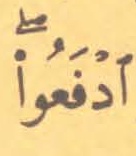 ٱدْفَعُوا۟ۖ